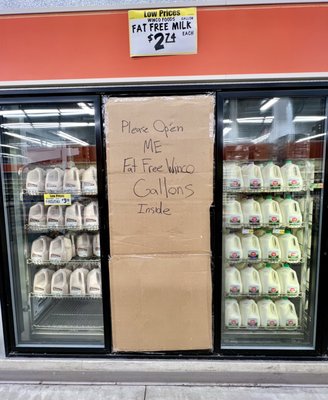 Low Prices
WINCO FOODS GALLON
FAT FREE MILK
$2.74 EACH
Please Open
ME
Fat Free Winco
Gallons
Inside